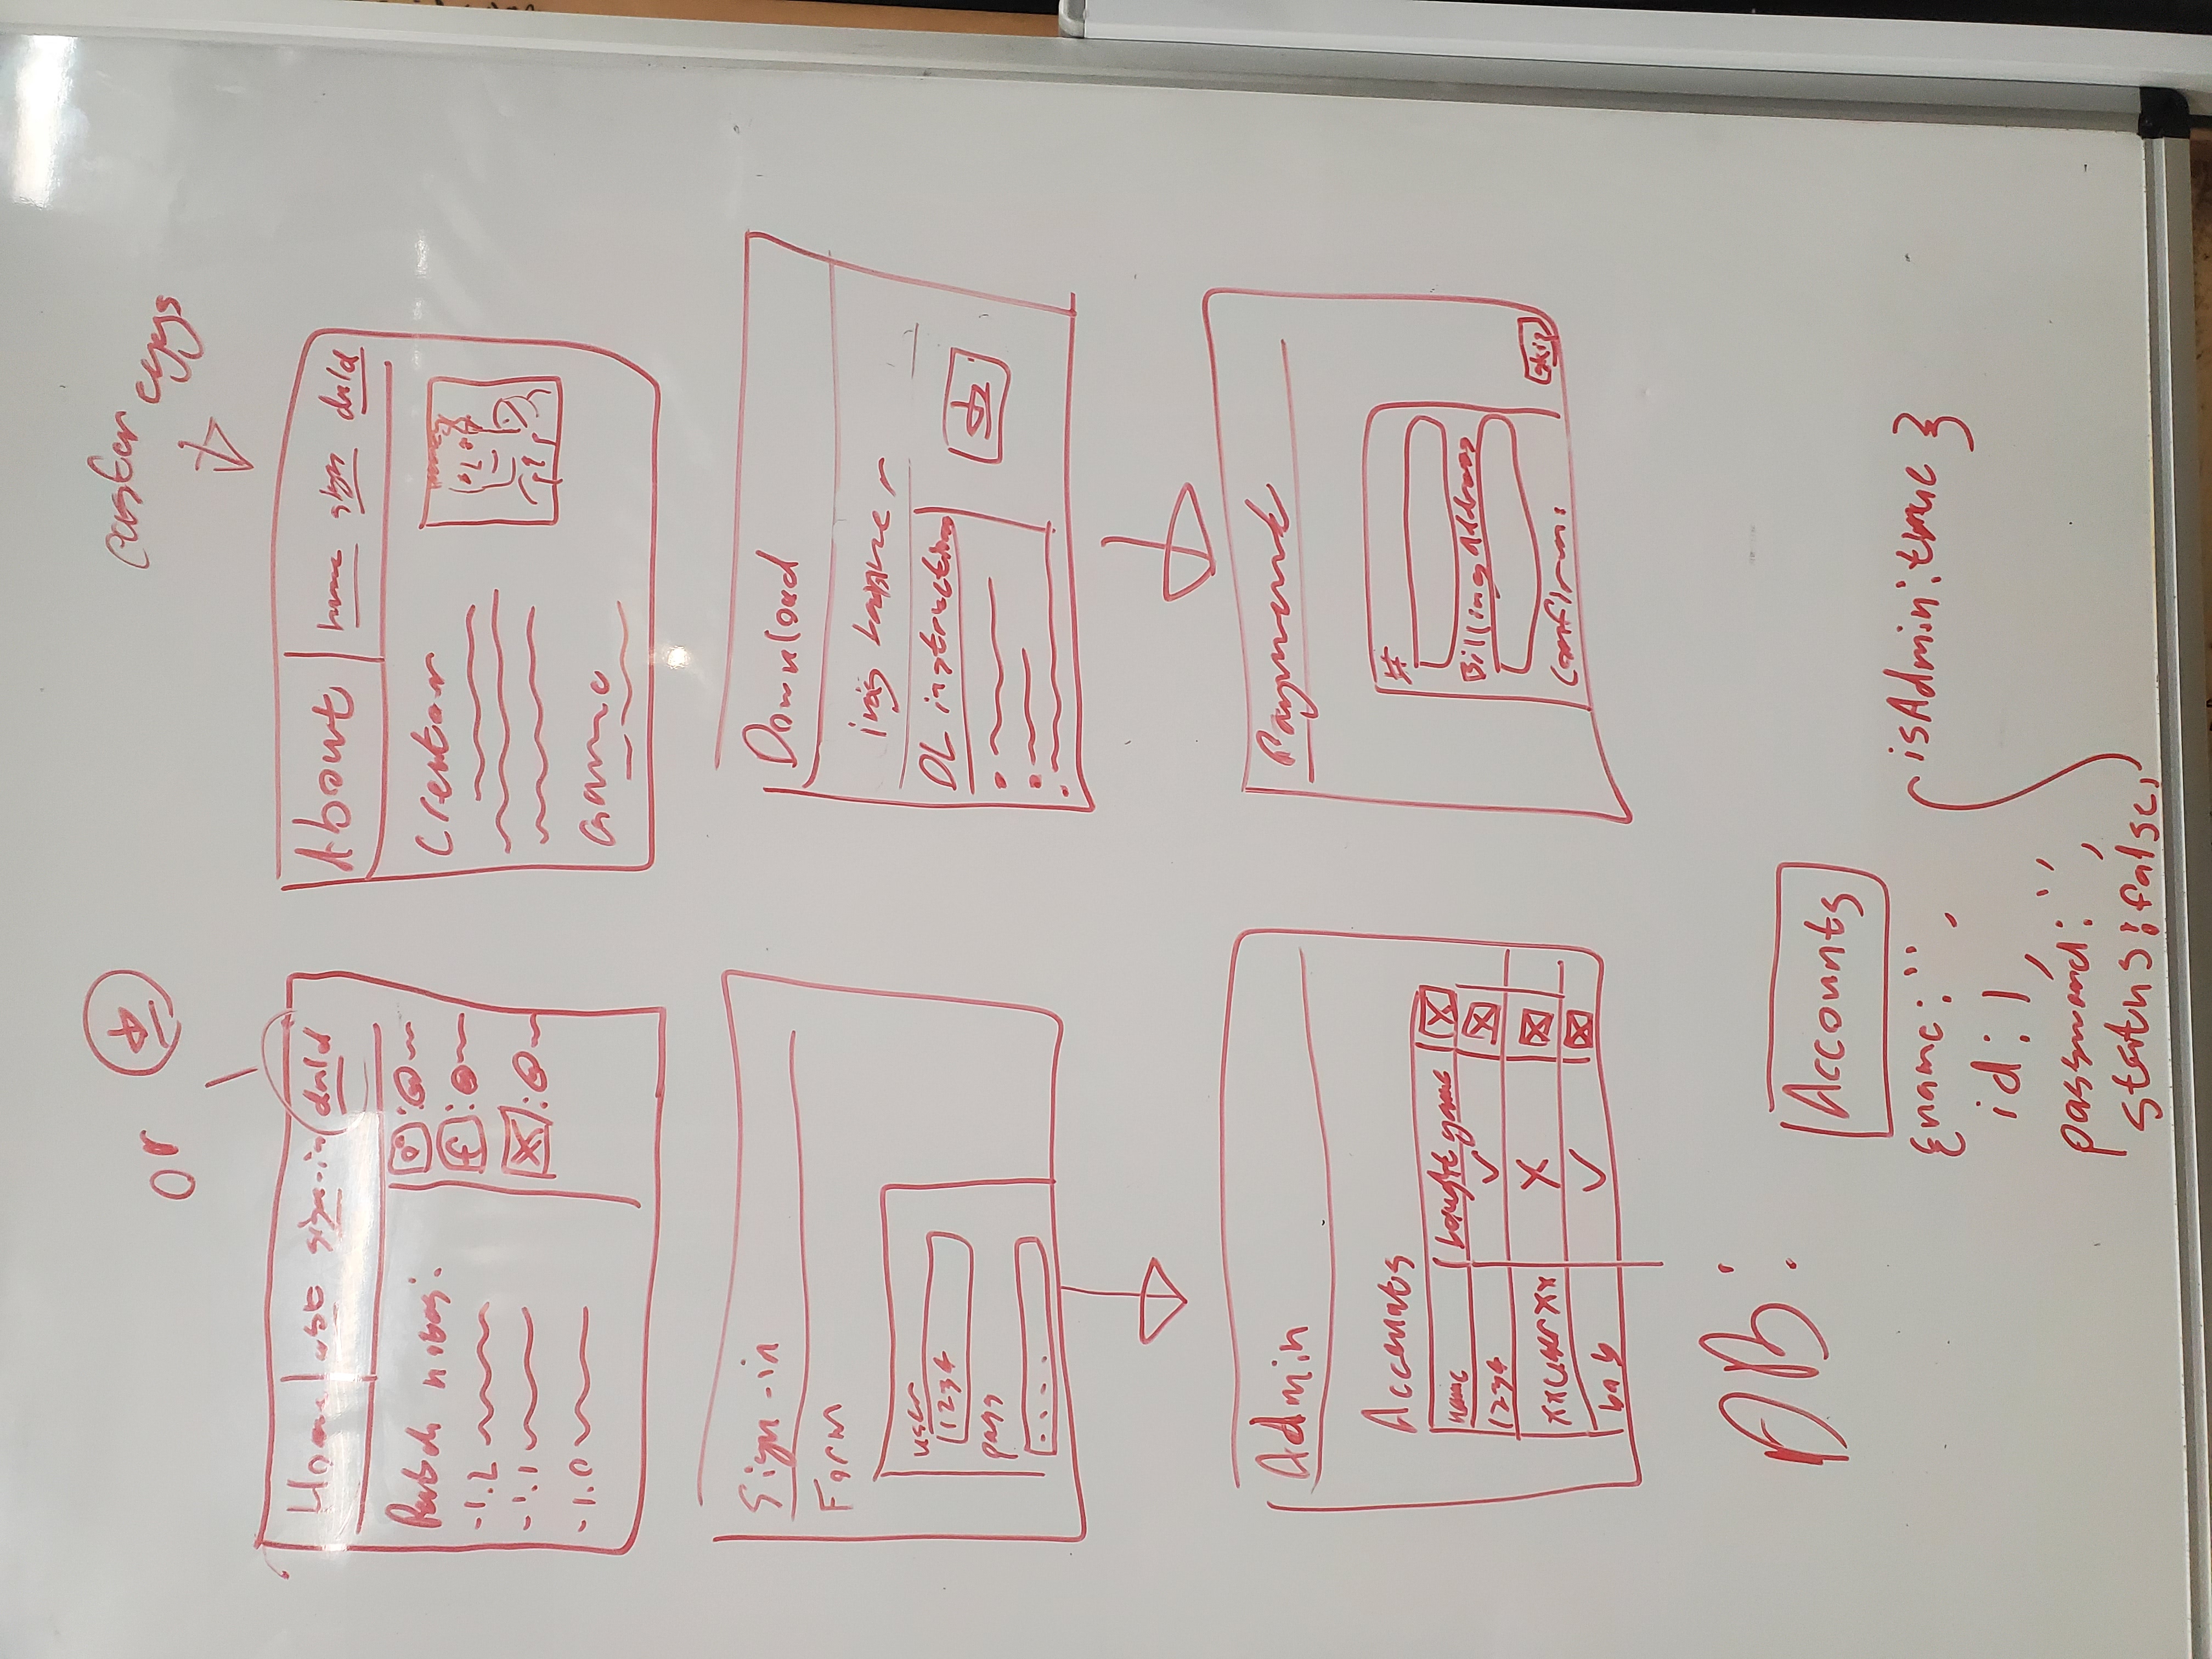 or
easter eggs
Home
sign-in
dnld
Patch notes:
-1.2
-1.1
-1.0
:@
f :@
X :@
About
home sign dnld
Creator
Game
Sign-in
Form
user
1234
pass
....
Download
img banner
DL instructions
Admin
Accounts
name bought game X
1234 ✓ X
xxuserxx X X
bab ✓ X
Payment
#
Billing Address
Confirm:
skip
DB:
Accounts
{name: '',
id: 1,
password: '',
status: false,
isAdmin: true }